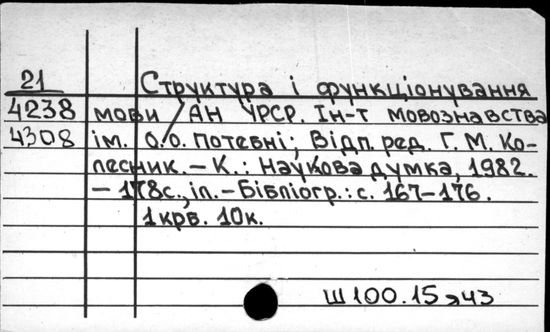 21 Структура і функціонування
4238 мови / АН УРСР. Ін-т мовознавства
4308 ім. О.О. Потебні; Відп. ред. Г. М. Ко-
лесник. – К.: Наукова думка, 1982.
– 178с., іл. – Бібліогр.: с. 167–176.
1 крв. 10к.
Ш100.15я43